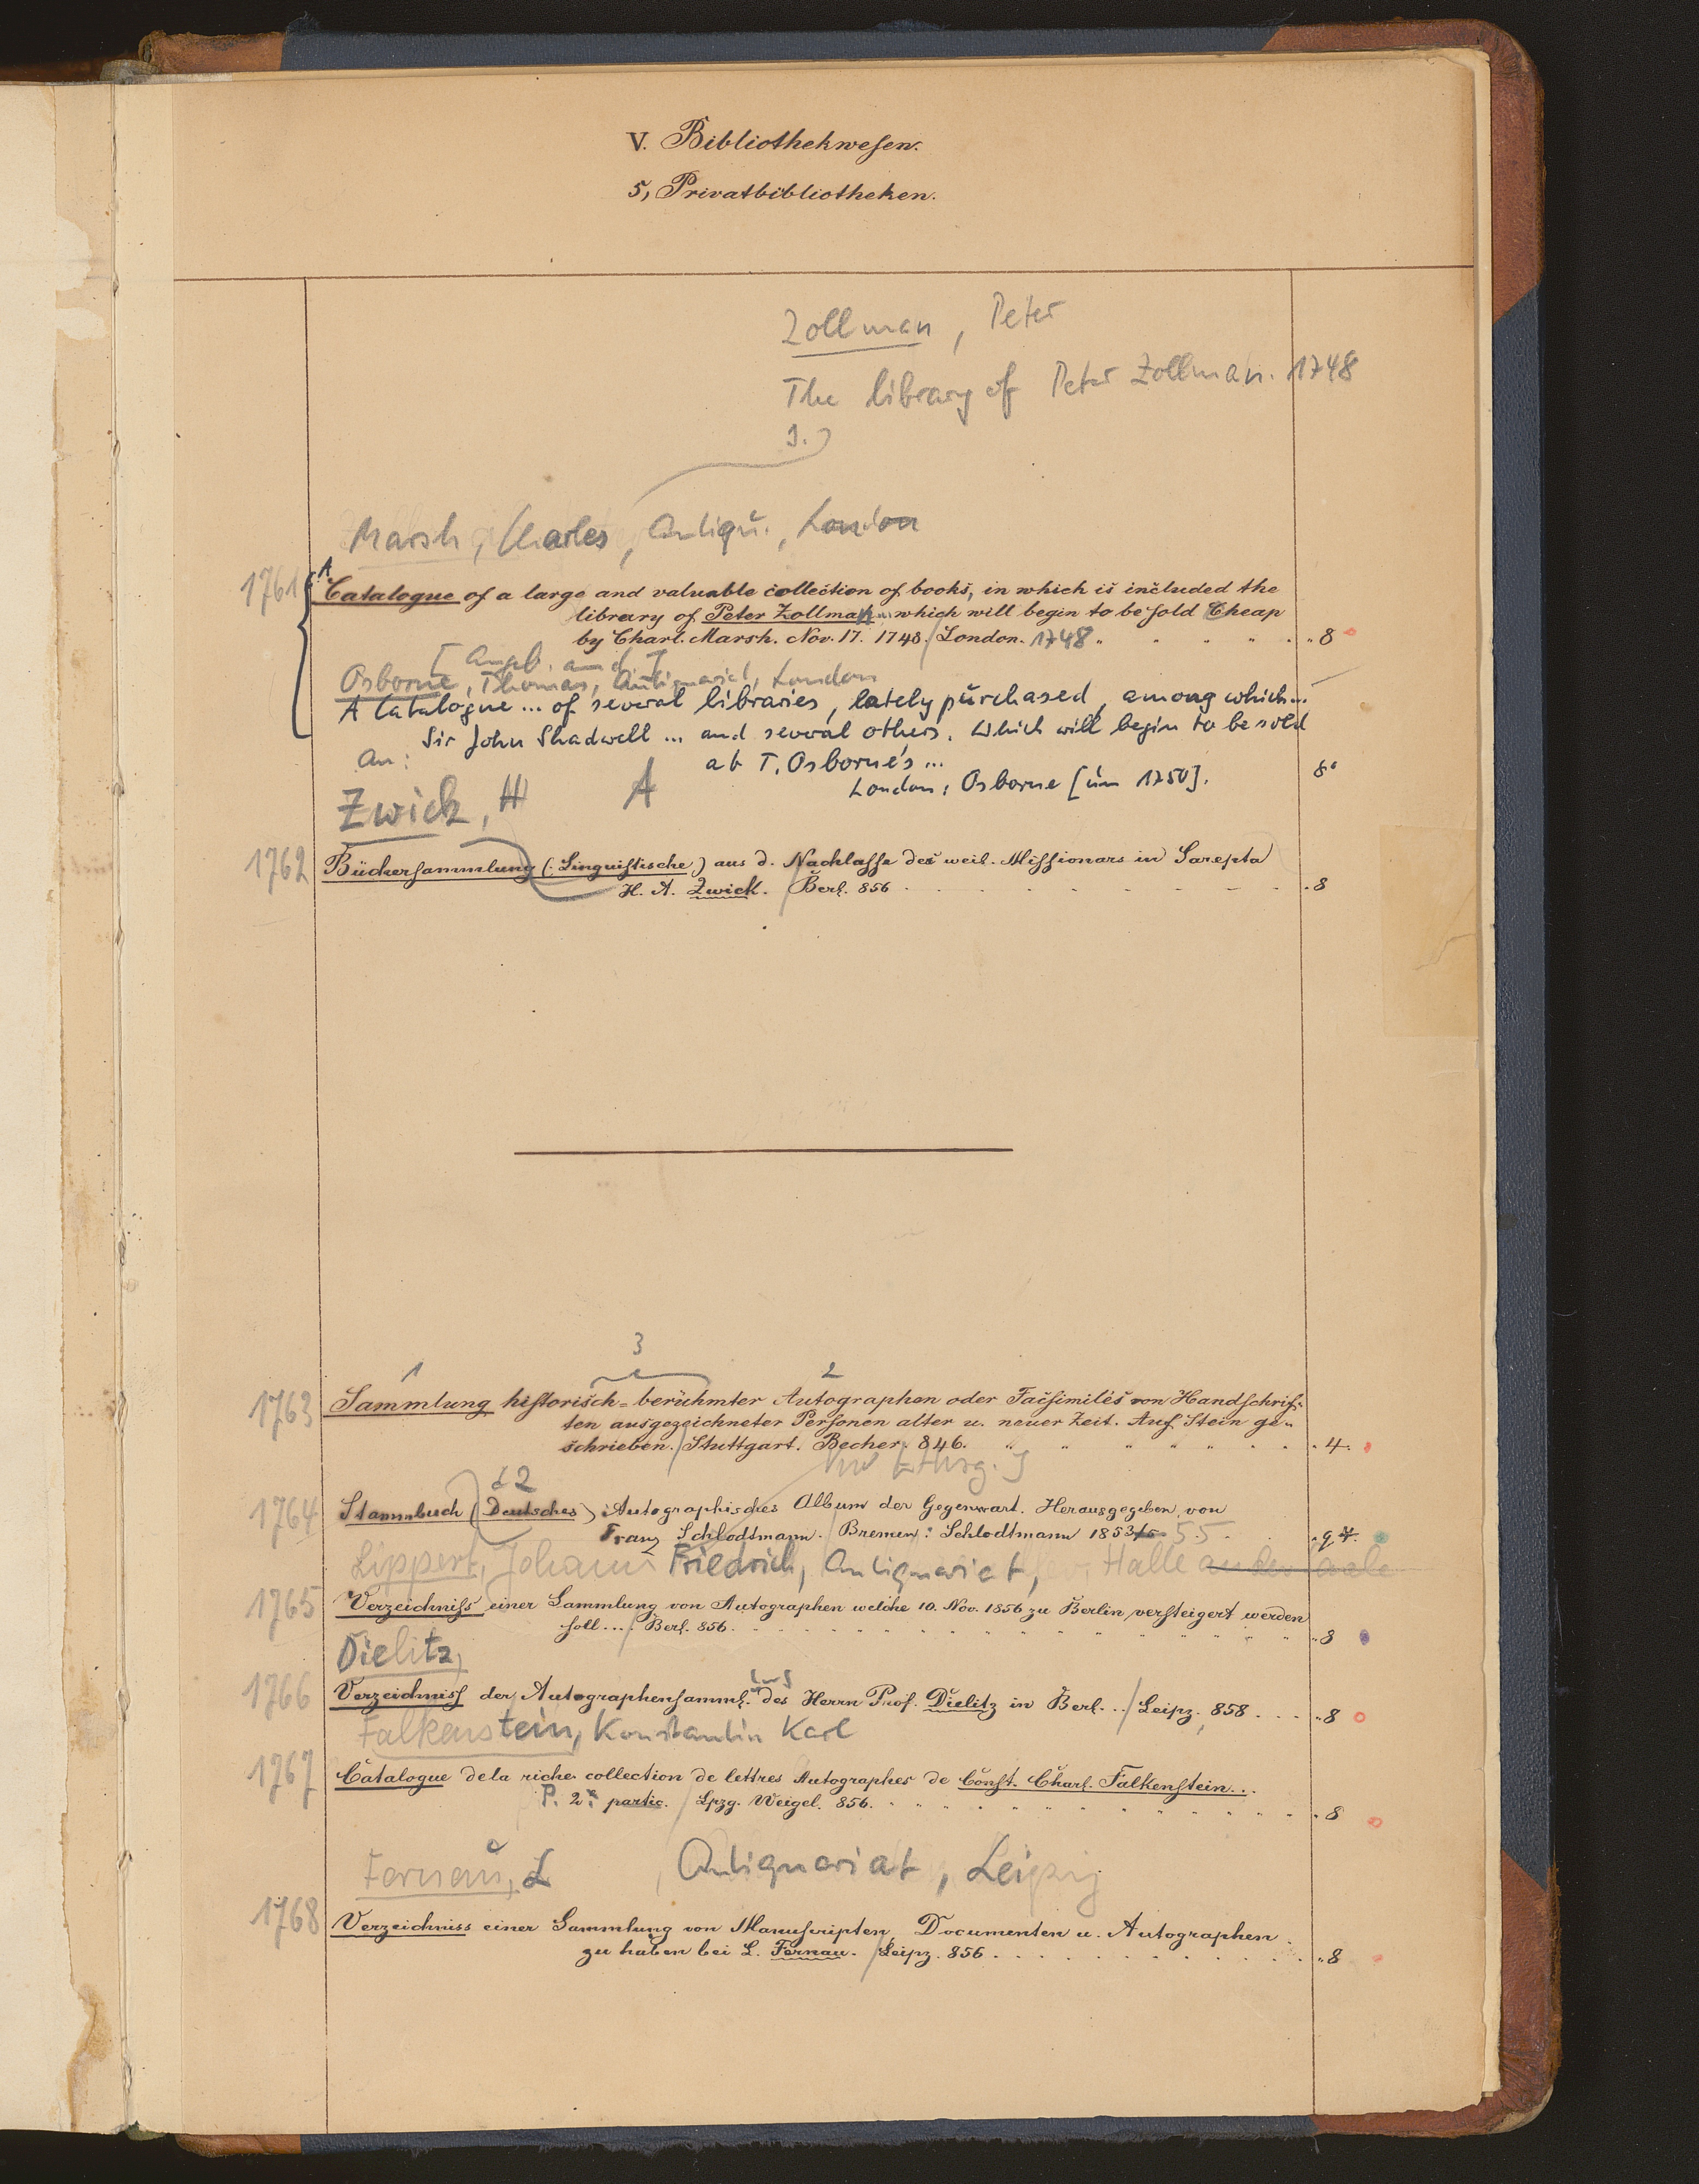 V. Bibliothekwesen.
5, Privatbibliotheken.
Zollman, Peter
The library of Peter Zollman. 1748
1.)
Marsh, Charles, Antiqu., London
1761 Catalogue of a large and valuable collection of books, in which is included the
library of Peter Zollman which will begin to be sold Cheap
by Charl. Marsh. Nov. 17. 1748. London. 1748 8
[Angeb. and.]
Osborne, Thomas, Antiquariat, London
A Catalogue ... of several libraries, lately purchased, among which...
Sir John Shadwell ... and several others. Which will begin to be sold
An: at T. Osborne's ...
London: Osborne [um 1750]. 8°
Zwick, H A
1762 Büchersammlung (Linguistische) aus d. Nachlasse des weil. Missionars in Sarepta
H. A. Zwick. Berl. 856 8
1 3 2
1763 Sammlung historisch-berühmter Autographen oder Facsimilés von Handschrif-
ten ausgezeichneter Personen alter u. neuer Zeit. Auf Stein ge-
schrieben. Stuttgart. Becher. 846. 4.
2
1764 Stammbuch (Deutsches) Autographisches Album der Gegenwart. Herausgegeben von
Franz Schlodtmann. Bremen: Schlodtmann 1853 55 4.
Lippert, Johann Friedrich, Antiquariat, Halle an der Saale
1765 Verzeichniss einer Sammlung von Autographen welche 10. Nov. 1856 zu Berlin versteigert werden
soll... Berl. 856. 8
Dielitz,
1766 Verzeichniss der Autographensamml. des Herrn Prof. Dielitz in Berl... Leipz. 858 8
Falkenstein, Konstantin Karl
1767 Catalogue de la riche collection de lettres Autographes de Const. Charl. Falkenstein...
P. 2e partie. Lpzg. Weigel. 856. 8
Fernau, L Antiquariat, Leipzig
1768 Verzeichniss einer Sammlung von Manuscripten, Documenten u. Autographen
zu haben bei L. Fernau. Leipz. 856 8